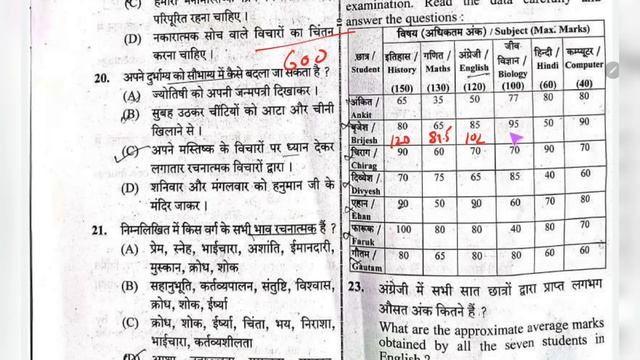 (C) हमारी
परिपूरित रहना चाहिए ।
(D) नकारात्मक सोच वाले विचारों का चिंतन
करना चाहिए ।
GOD
20. अपने दुर्भाग्य को सौभाग्य में कैसे बदला जा सकता है ?
(A) ज्योतिषी को अपनी जन्मपत्री दिखाकर ।
(B) सुबह उठकर चींटियों को आटा और चीनी
खिलाने से ।
(C) अपने मस्तिष्क के विचारों पर ध्यान देकर
लगातार रचनात्मक विचारों द्वारा ।
(D) शनिवार और मंगलवार को हनुमान जी के
मंदिर जाकर ।
21. निम्नलिखित में किस वर्ग के सभी भाव रचनात्मक हैं ?
(A) प्रेम, स्नेह, भाईचारा, अशांति, ईमानदारी,
मुस्कान, क्रोध, शोक
(B) सहानुभूति, कर्तव्यपालन, संतुष्टि, विश्वास,
क्रोध, शोक, ईर्ष्या
(C) क्रोध, शोक, ईर्ष्या, चिंता, भय, निराशा,
भाईचारा, कर्तव्यशीलता
examination. Read the data carefully and
answer the questions :
विषय (अधिकतम अंक) / Subject (Max. Marks)
छात्र / Student इतिहास / History (150) गणित / Maths (130) अंग्रेज़ी / English (120) जीव विज्ञान / Biology (100) हिन्दी / Hindi (60) कम्प्यूटर / Computer (40)
अंकित / Ankit 65 35 50 77 80 80
बृजेश / Brijesh 80 65 85 95 50 90
120 84.5 102
चिराग / Chirag 90 60 70 70 90 70
दिव्येश / Divyesh 70 75 65 85 40 60
एहान / Ehan 90 50 90 60 70 80
फारूक / Faruk 100 80 80 40 80 70
गौतम / Gautam 80 65 80 80 60 60
23. अंग्रेजी में सभी सात छात्रों द्वारा प्राप्त लगभग
औसत अंक कितने हैं ?
What are the approximate average marks
obtained by all the seven students in
English ?